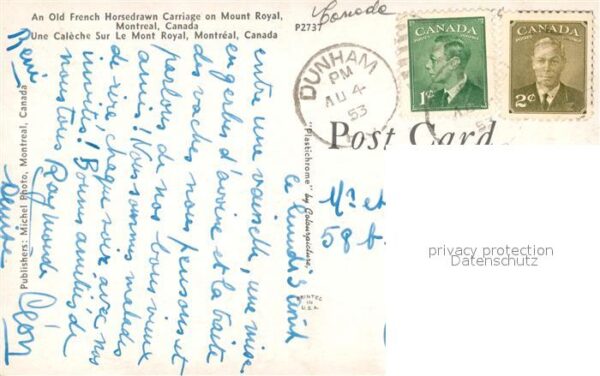 An Old French Horsedrawn Carriage on Mount Royal,
Montreal, Canada
Une Calèche Sur Le Mont Royal, Montréal, Canada
P2737
Canada
DUNHAM
PM
AU 4
53
CANADA
POSTES POSTAGE
1¢
CANADA
POSTES POSTAGE
2¢
Post Card
"Plastichrome" by Colourpicture,
PRINTED
IN
U.S.A.
Publishers: Michel Photo, Montreal, Canada
le lundi 3 août
entre une vaisselle, une mise
en gerbes d'avoine et la traite
des vaches nous pensons et
parlons de nos bons vieux
amis! Nous sommes malades
de rire, chaque soir, avec nos
invités! Bonnes amitiés de
nous tous Raymonde Léon
René
Denise
Mr et
58 b
privacy protection
Datenschutz